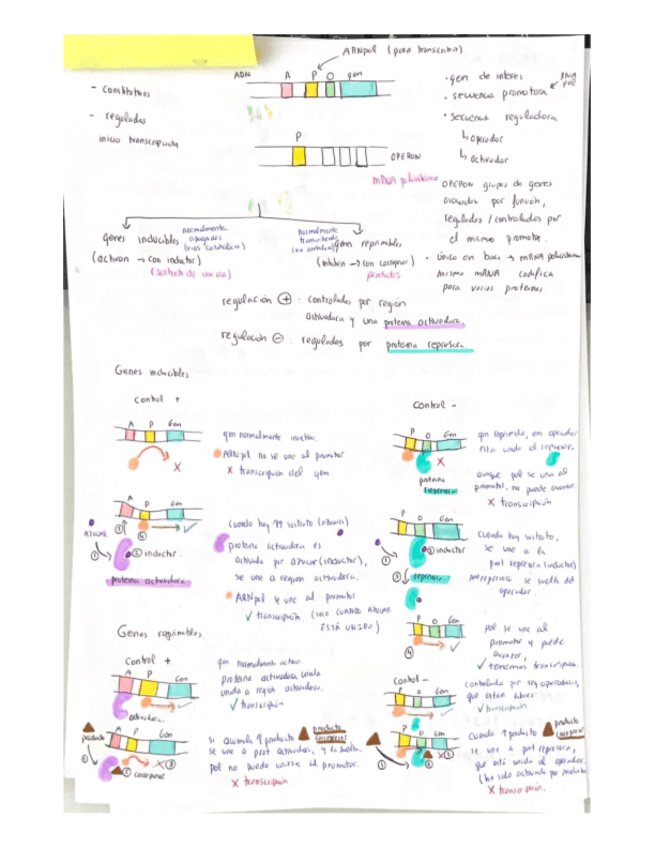 ARNpol (para transcribir)
ADN A P O gen
- constitutivos
- regulados
inicio transcripción
· gen de interés
· secuencia promotora ← RNA pol
· secuencia reguladora
↳ operador
↳ activador
P
OPERON
mRNA policistrónico
OPERON grupo de genes
por función,
regulados / controlados por
el mismo promotor.
· único en bacs → mRNA policistrónico
mismo mRNA codifica
para varias proteínas
genes inducibles normalmente apagados (vías catabólicas)
(activan → con inductor)
(sustrato de un vía)
normalmente genes reprimibles
(inhiben → con correpresor)
productos
regulación + : controlados por región
activadora y una proteína activadora.
regulación - : regulados por proteína represora.
Genes inducibles
control +
A P Gen
gen normalmente inactivo.
ARNpol no se une al promotor
X transcripción del gen.
A P Gen
AZUCAR
① ② inductor ③ ④
proteína activadora
Cuando hay ↑↑ sustrato
proteína activadora es
activada por azúcar (inductor),
se une a región activadora.
ARNpol se une al promotor
✓ transcripción. (SOLO CUANDO AZUCAR
ESTÁ UNIDO)
Control -
P O Gen
X
proteína represora
gen reprimido, en operador
está unido el represor.
aunque pol se una al
promotor, no puede avanzar.
X transcripción
P O Gen
① ② inductor
③ represora
cuando hay sustrato,
se une a la
prot represora (inductor)
represora se suelta del
operador.
P O Gen
④
pol se une al
promotor y puede
avanzar,
✓ tenemos transcripción.
Genes reprimibles
Control +
A P Gen
activadora.
gen normalmente activo
proteína activadora unida
unida a región activadora.
✓ transcripción
producto
A P Gen
① ② correpresor X ③
si acumula ↑ producto producto correpresor
se une a prot activadora, y la suelta,
pol no puede unirse al promotor.
X transcripción
Control -
P O Gen
controlado por seq operadora,
que están libres
✓ transcripción
P O Gen
① ② X ③
Cuando ↑ producto producto correpresor
se une a prot represora,
que está unido al operador.
(ha sido activado por producto
X transcripción.